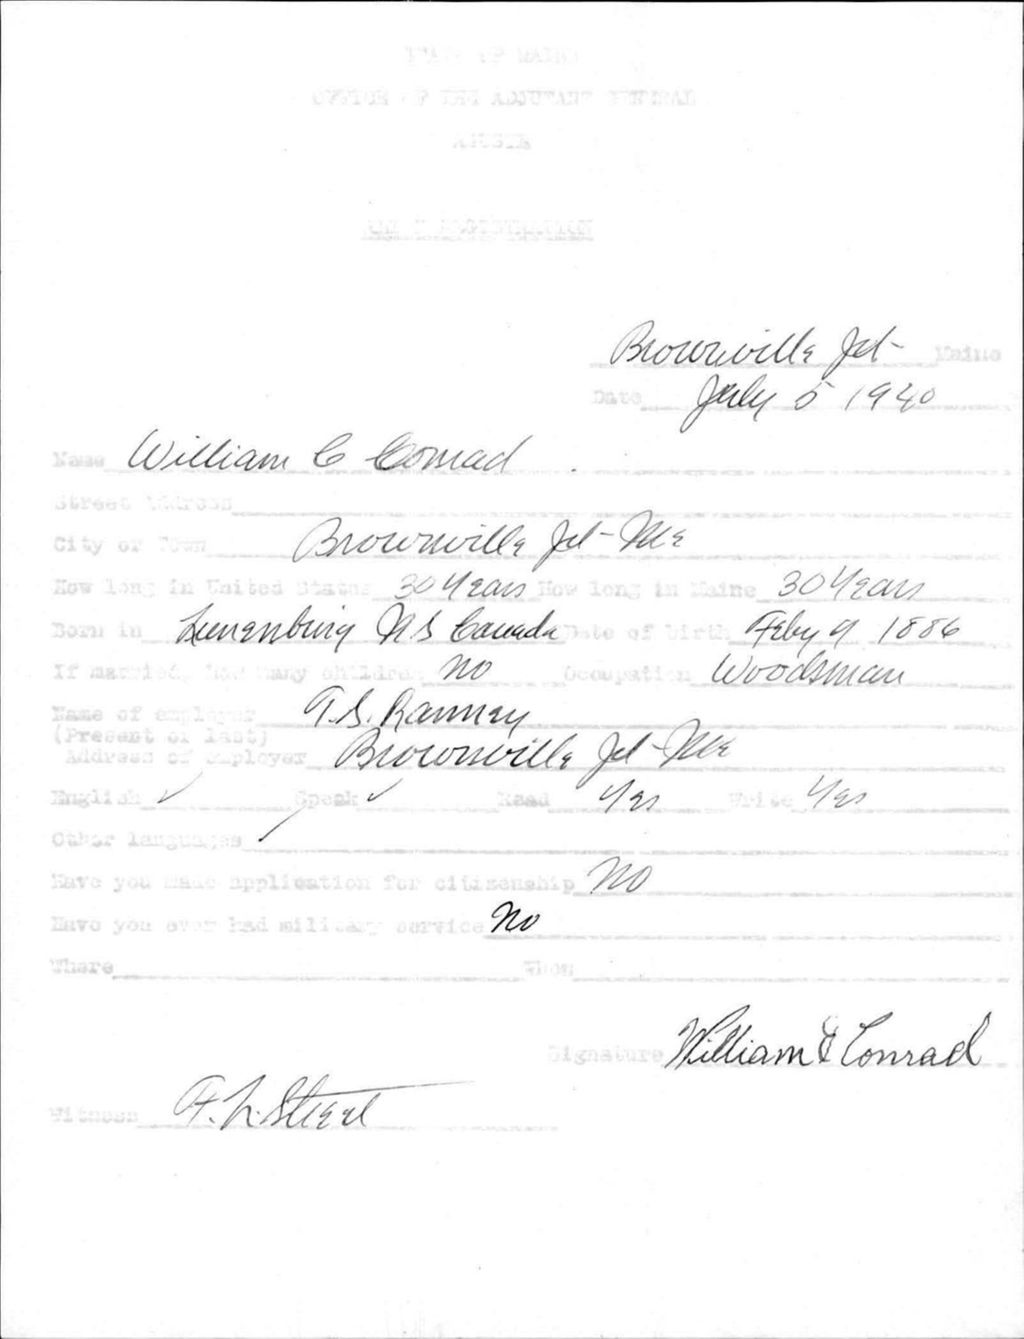 STATE OF MAINE
OFFICE OF THE ADJUTANT GENERAL
AUGUSTA
ALIEN REGISTRATION
Brownville Jct- Maine
Date July 5 1940
Name William C Conrad .
Street Address
City or Town Brownville Jct- Me
How long in United States 30 Years How long in Maine 30 Years
Born in Lunenburg N S Canada Date of birth Feby 9 1886
If married, how many children no Occupation Woodsman
Name of employer T. S. Ranney
(Present or last)
Address of employer Brownville Jct- Me
English ✓ Speak ✓ Read Yes Write Yes
Other languages /
Have you made application for citizenship no
Have you ever had military service no
Where When
Signature William C Conrad
Witness F. L. Steel